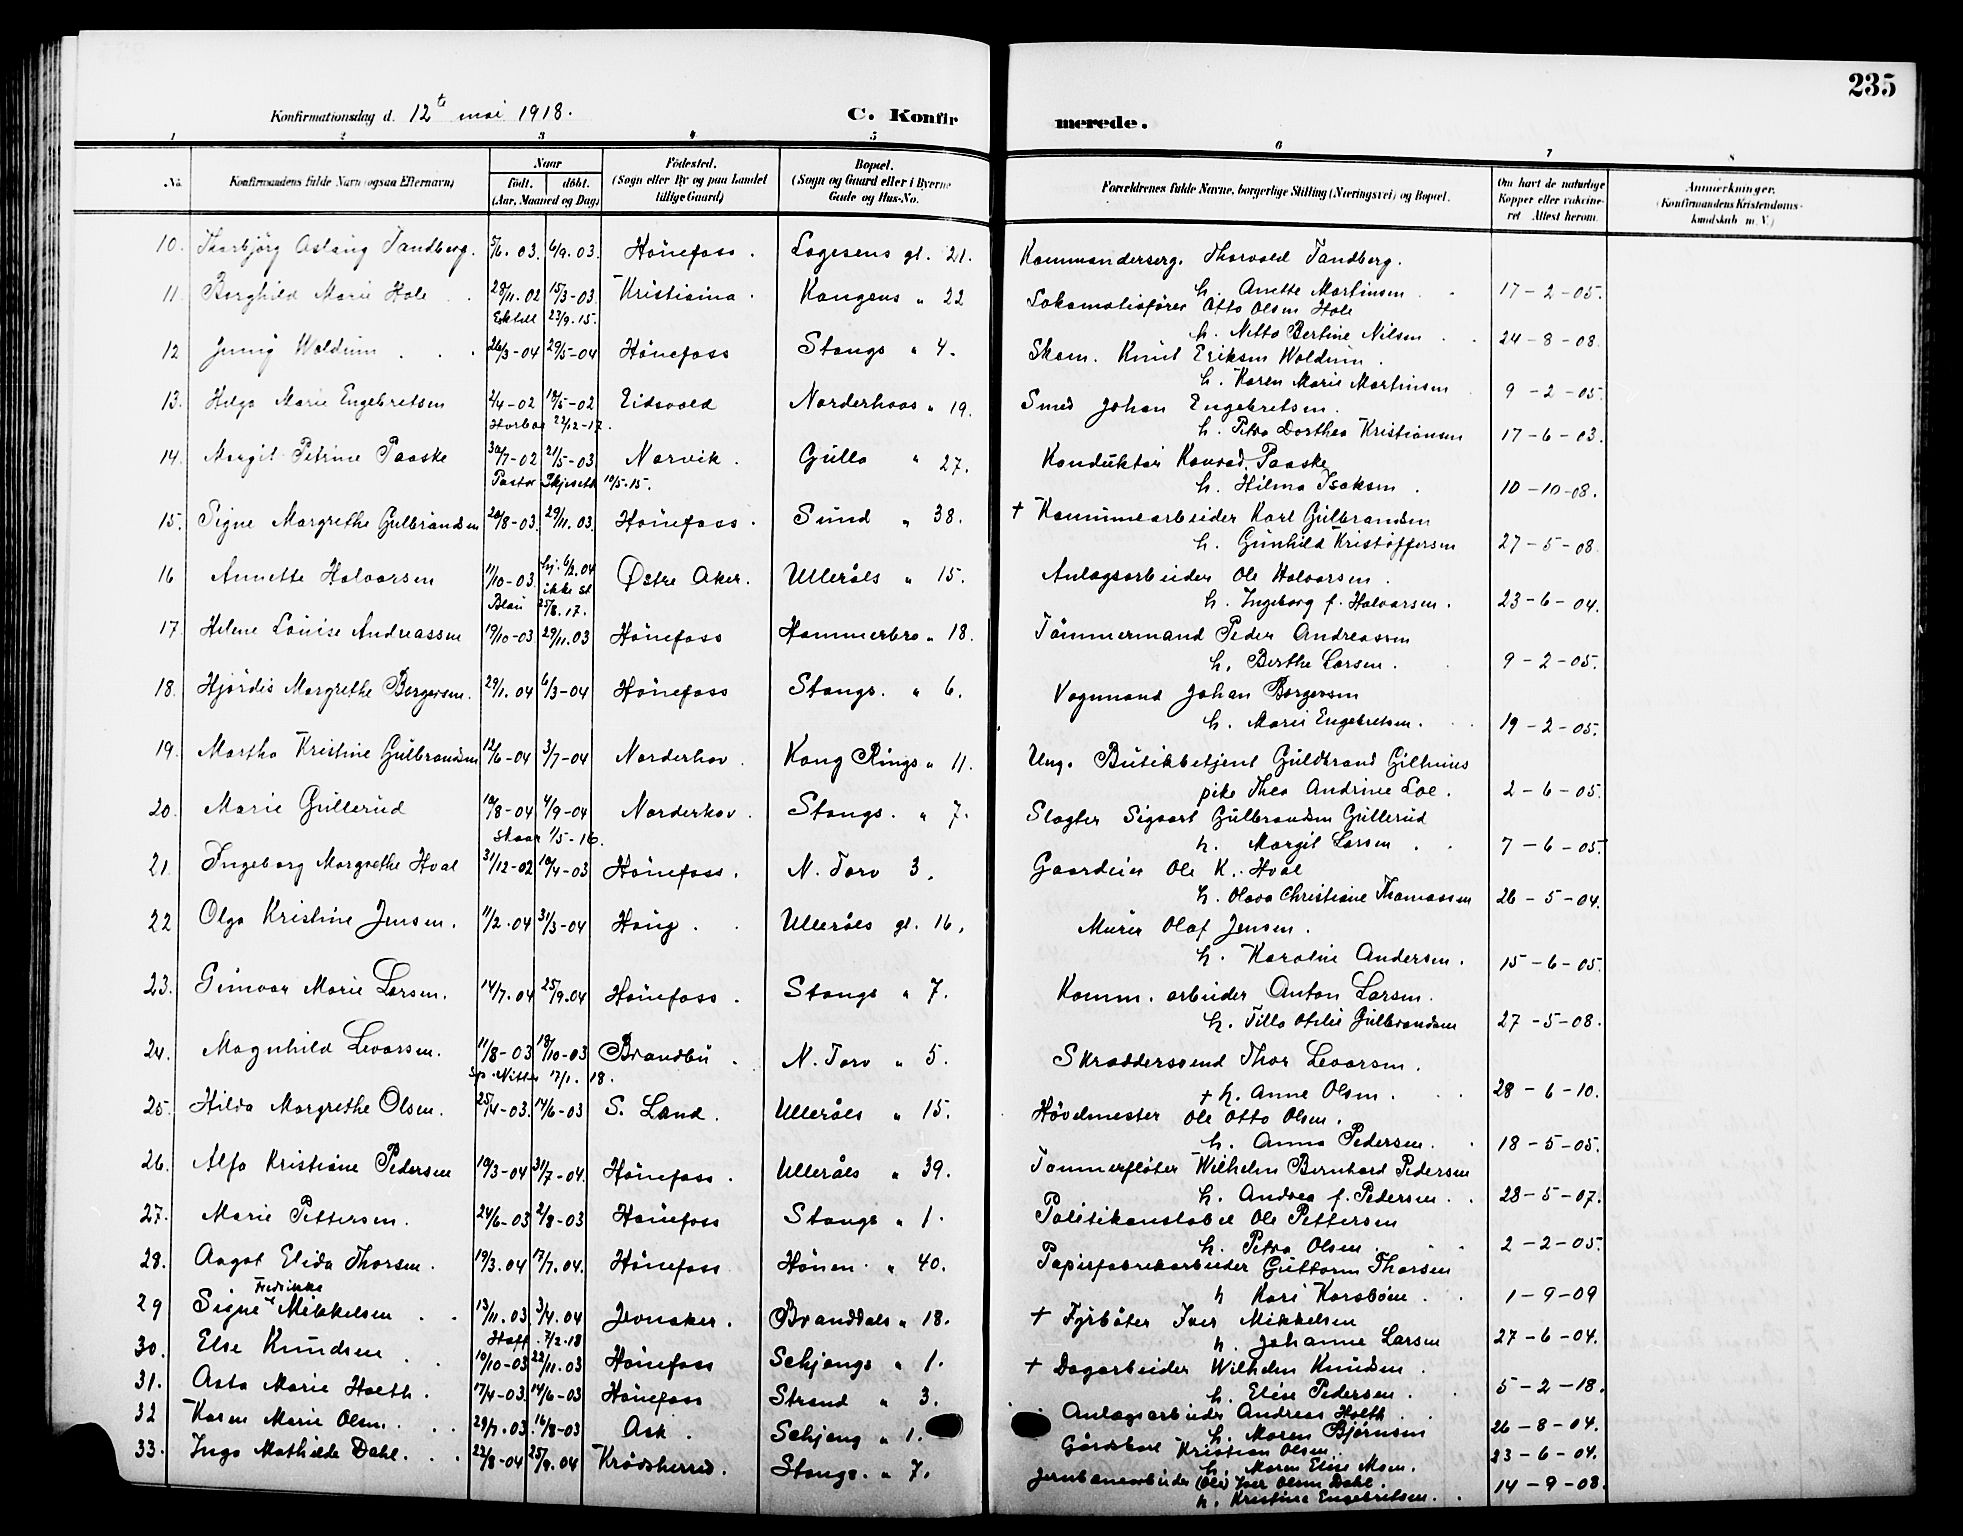 235
Konfirmationsdag d. 12te mai 1918.
C. Konfir
merede.
1 2 3 4 5 6 7 8
No.
Konfirmandens fulde Navn (ogsaa Efternavn)
Naar
födt. döbt.
(Aar, Maaned og Dag)
Födested.
(Sogn eller By og paa Landet
tillige Gaard)
Bopæl.
(Sogn og Gaard eller i Byerne
Gade og Hus-No.
Forældrenes fulde Navne, borgerlige Stilling (Næringsvei) og Bopæl.
Om havt de naturlige
Kopper eller vakcine-
ret Attest herom.
Anmærkninger.
(Konfirmandens Kristendoms-
kundskab m. V.)
10. Thorbjörg Aslaug Tandberg. 5/6. 03. 6/9. 03. Hönefoss. Lagesens gt. 21. Kommandersерg. Thorvald Tandberg.
h. Anette Martinsen 17-2-05.
11. Borghild Marie Hole 28/11. 02 15/3-03. Kristiania. Kongens " 22 Lokomotivförer Otto Olsen Hole
23/9. 15. h. Nitta Bertine Nilsen 24-8-08.
12 Jenny Woldum 26/3-04 29/5-04 Hönefoss Stangs " 4. Skom. Knut Eriksen Woldum.
h. Karen Marie Martinsen 9-2-05.
13. Helga Marie Engebretsen 2/4-02 19/5-02 Eidsvold Norderhovs " 19. Smed Johan Engebretsen.
22/12-17. h. Petra Dorthea Kristiansen 17-6-03.
14. Margit Petrine Paaske 30/7-02 21/5-03 Narvik. Gulla " 27. Konduktör Konrad Paaske
Pastor Skjeseth 10/5-15. h. Hilma Isaksen. 10-10-08.
15. Signe Margrethe Gulbrandsen 20/8-03. 29/11. 03. Hönefoss. Sund " 38. + Kommunearbeider Karl Gulbrandsen
h. Gunhild Kristoffersen 27-5-08.
16 Annette Halvorsen 11/10-03. hj. 6/2. 04 Østre Aker. Ulleråls " 15. Anlægsarbeider Ole Halvorsen.
ikke st
25/8. 17. h. Ingeborg f. Halvorsen. 23-6-04.
17. Helene Louise Andreassen 19/10-03 29/11. 03 Hönefoss Hammerbro " 18. Tömmermand Peder Andreassen
h. Berthe Larsen. 9-2-05.
18. Hjördis Margrethe Borgersen. 29/1. 04 6/3-04 Hönefoss Stangs. " 6. Vognmand Johan Borgersen
h. Marie Engebretsen. 19-2-05.
19. Martha Kristine Gulbrandsen 12/6-04 3/7-04 Norderhov. Kong Rings " 11. Ung. Butikbetjent Guldbrand Gilhuus
pike Thea Andrine Loe. 2-6-05.
20. Marie Gullerud 10/8-04 4/9-04 Norderhov. Stangs. " 7. Slagter Sigvart Gulbrandsen Gullerud
1/5-16. h. Margit Larsen 7-6-05.
21. Ingeborg Margrethe Hval 31/12-02 10/4-03 Hönefoss. N. Torv 3. Gaardeier Ole K. Hval
h. Olava Christiane Thomassen 26-5-04.
22 Olga Kristine Jensen. 11/2. 04 31/3-04 Haug. Ulleråls gt. 16. Murer Olaf Jensen.
h. Karoline Andersen. 15-6-05.
23. Gunvor Marie Larsen. 14/7. 04 25/9. 04 Hönefoss. Stangs " 7. Komm. arbeider Anton Larsen.
h. Tilla Otilie Gulbrandsen 27-5-08.
24. Magnhild Levorsen. 11/8-03 18/10-03 Brandbu. N. Torv " 5. Skræddersvend Thor Levorsen.
17/1. 18. + h. Anne Olsen. 28-6-10.
25. Hilda Margrethe Olsen. 25/4-03. 14/6-03 S. Land. Ulleråls " 15. Hövelmester Ole Otto Olsen.
h. Anna Pedersen. 18-5-05.
26. Alfa Kristiane Pedersen 19/3-04 31/7-04. Hönefoss. Ulleråls " 39. Tömmerflöter Wilhelm Bernhard Pedersen
h. Andrea f. Pedersen. 28-5-07.
27. Marie Pettersen. 24/6-03 2/8-03 Hönefoss Stangs " 1. Politikonstabel Ole Pettersen
h. Petra Olsen. 2-2-05.
28. Aagot Elida Thorsen. 19/3. 04 17/7. 04. Hönefoss Hönen. " 40. Papirfabrikarbeider Guttorm Thorsen
h Kari Korsböen. 1-9-09
Fredrikke
29 Signe Mikkelsen 13/11. 03 3/4. 04 Jevnaker. Branddals " 18. + Fyrböter Iver Mikkelsen
7/2. 18 h. Johanne Larsen 27-6-04.
30. Else Knudsen 10/10-03 22/11. 03 Hönefoss Schjongs " 1. + Dagarbeider Wilhelm Knudsen.
h. Elise Pedersen. 5-2-18.
31. Asta Marie Holth. 17/4-03. 14/6-03 Hönefoss Strand " 3. Anlægsarbeider Andreas Holth
h. Maren Bjørnsen 26-8-04.
32 Karen Marie Olsen. 29/7. 03. 16/8-03 Ask. Schjong " 1. Gårdskarl Kristian Olsen.
h. Maren Elise Moen. 23-6-04.
33. Inga Mathilde Dahl. 22/8-04 25/9. 04 Krödsherred. Stangs. " 7. Jernbanearbeider (Ole) Iver Olsen Dahl.
h. Kristine Engebretsen. 14-9-08.